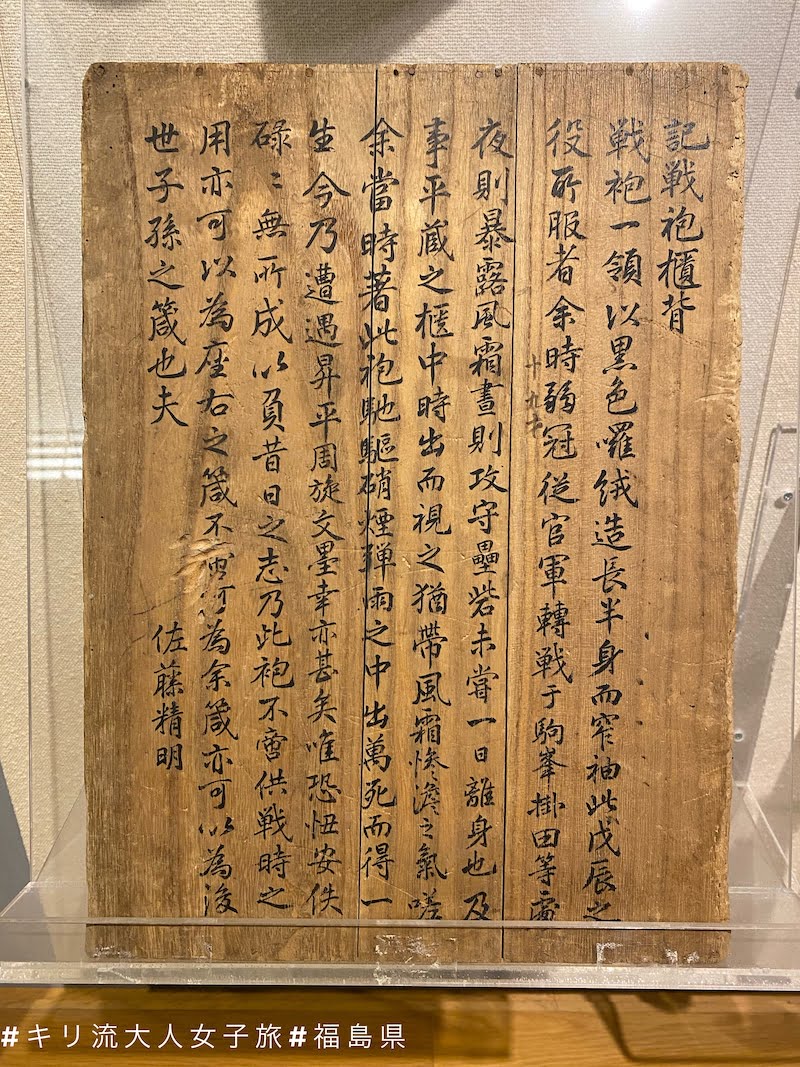 記戦袍櫃背
戦袍一領以黒色囉絨造長半身而窄袖此戊辰之
役所服者余時弱冠従官軍轉戦于駒峯掛田等處
十九才
夜則暴露風霜晝則攻守壘砦未嘗一日離身也及
事平蔵之櫃中時出而視之猶帶風霜惨澹之氣嗟
余當時著此袍馳驅硝煙弾雨之中出萬死而得一
生今乃遭遇昇平周旋文墨幸亦甚矣唯恐忸安佚
碌〻無所成以負昔日之志乃此袍不啻供戦時之
用亦可以為座右之箴不啻可為余箴亦可以為後
世子孫之箴也夫
佐藤精明
#キリ流大人女子旅#福島県